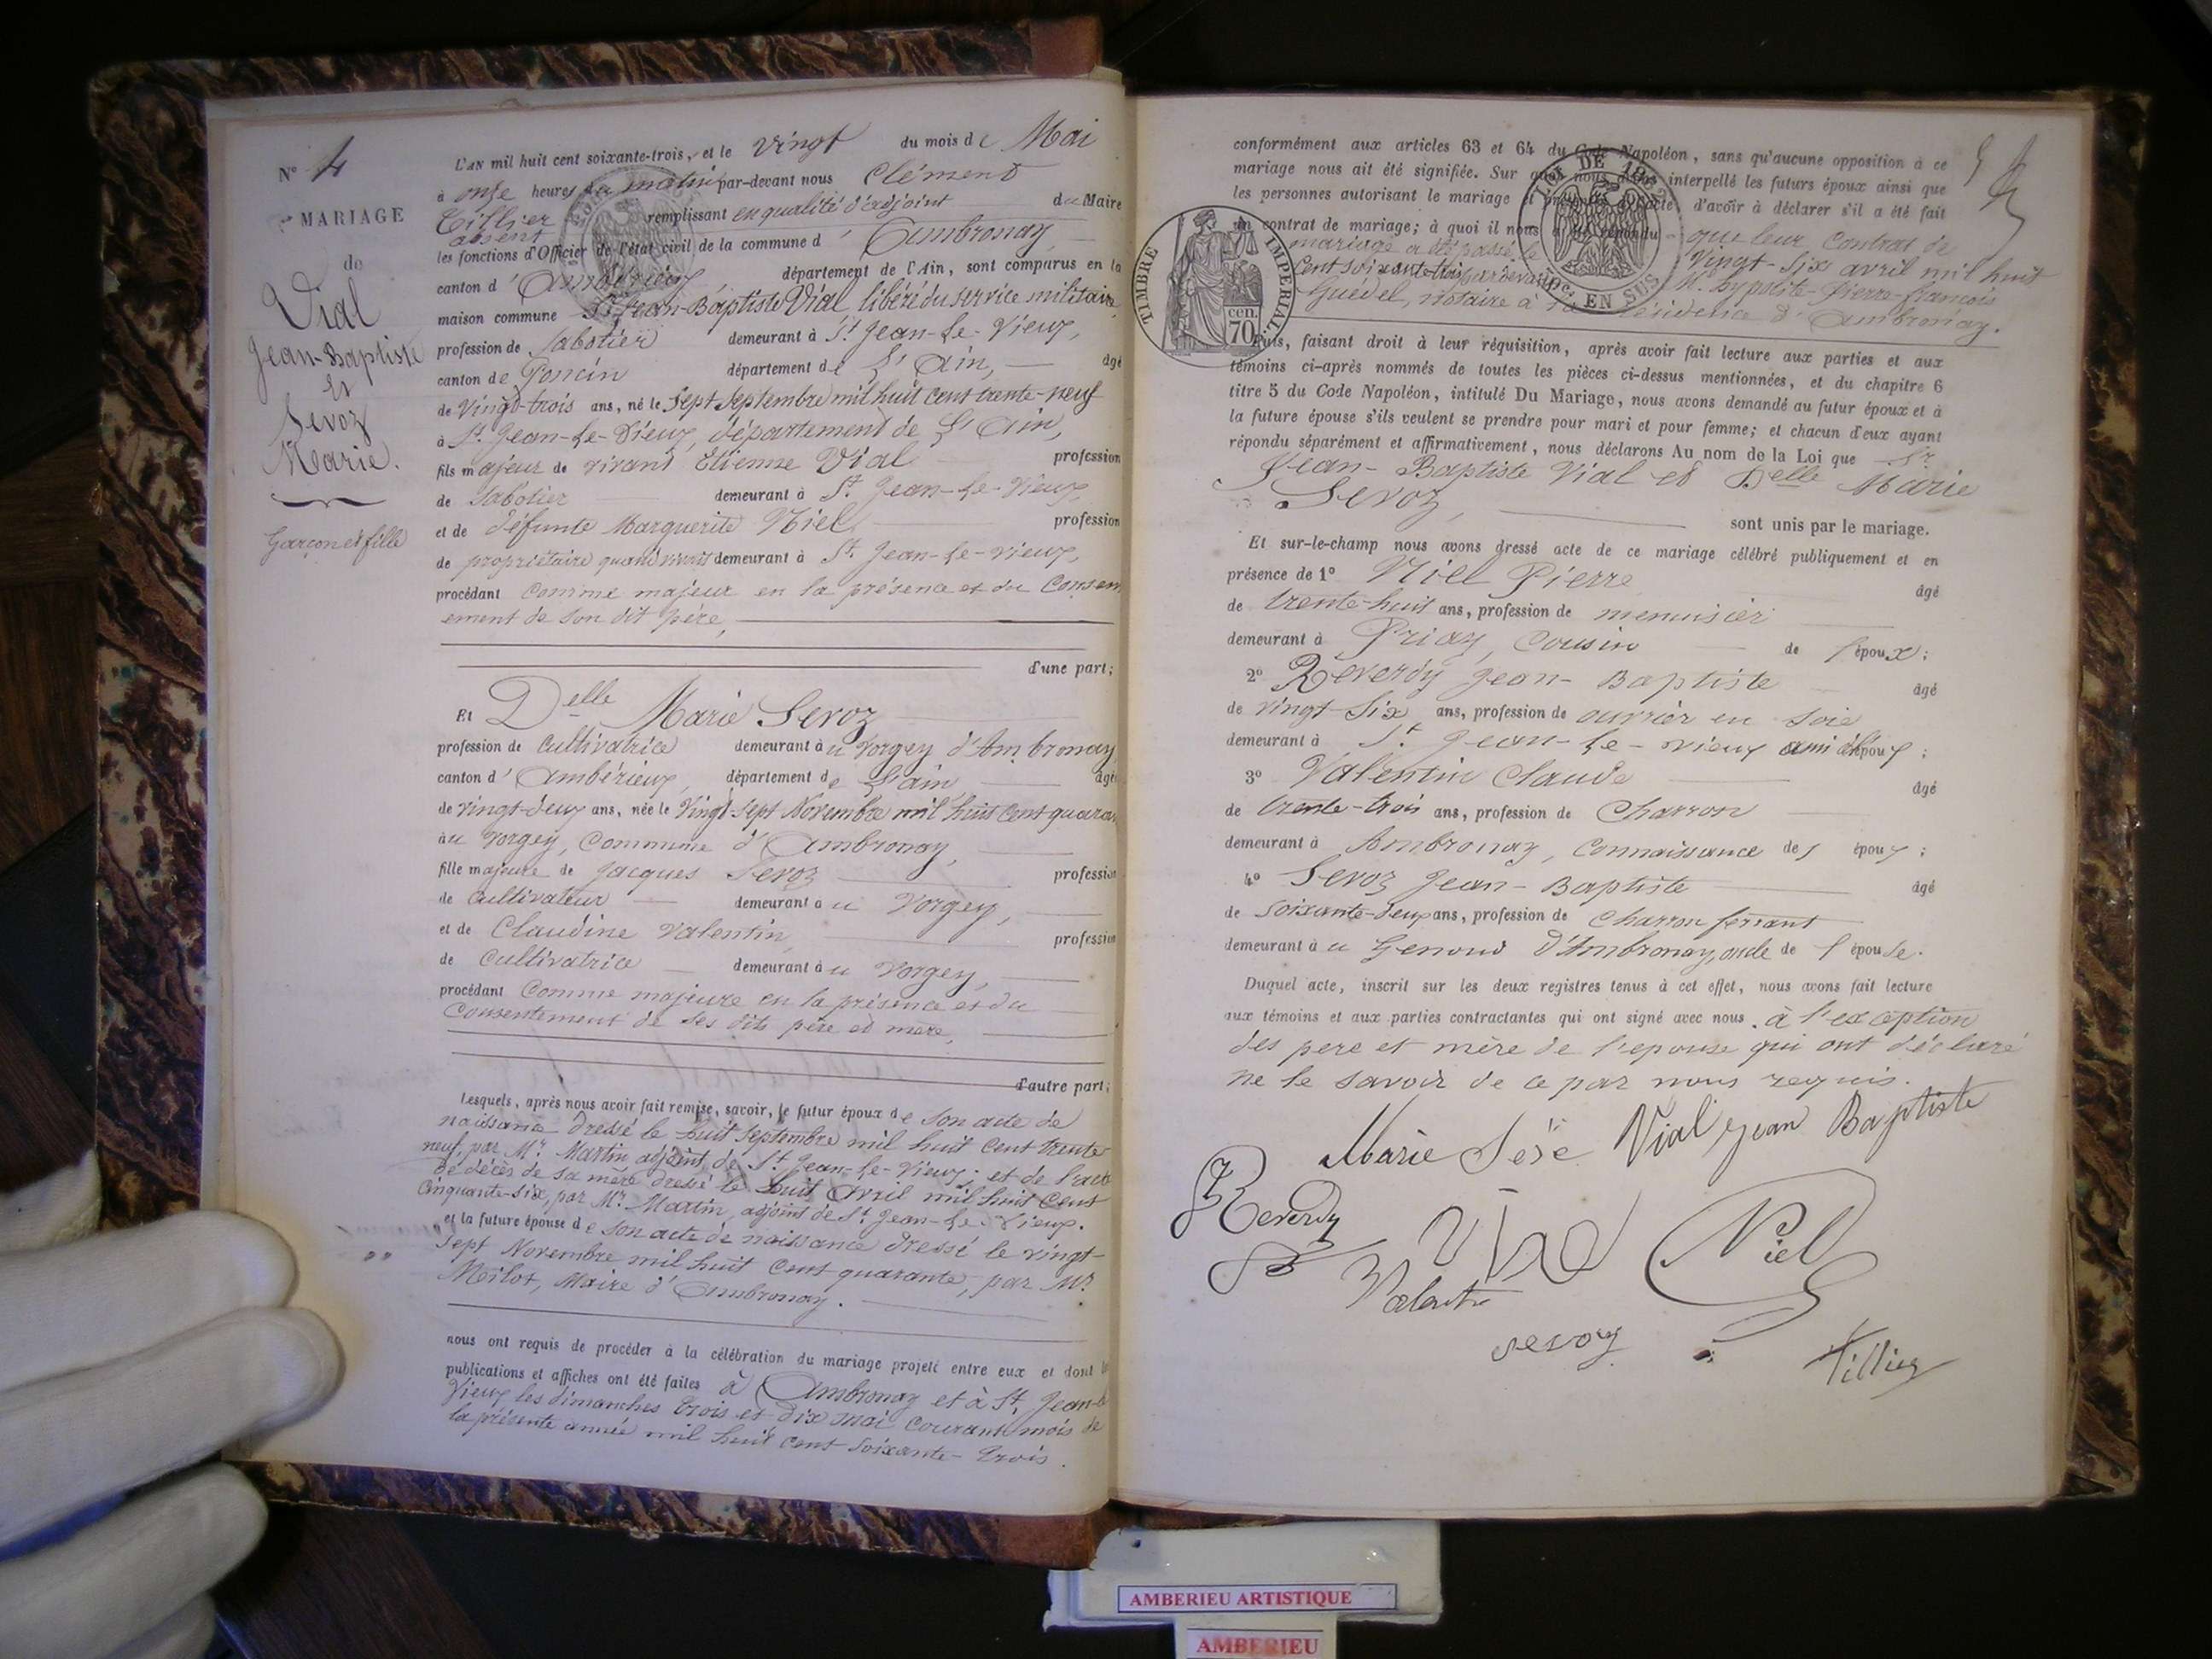 N° 4
MARIAGE
de
Vial
Jean-Baptiste
et
Sevoz
Marie.
Garçon et fille
L'AN mil huit cent soixante-trois, et le vingt du mois de Mai
à onze heures du matin par-devant nous Clément
Tillier remplissant en qualité d'adjoint du Maire
absent
les fonctions d'Officier de l'état civil de la commune d'Ambronay,
canton d'Ambérieux département de l'Ain, sont comparus en la
maison commune Sr Jean-Baptiste Vial, libéré du service militaire,
profession de Sabotier demeurant à St Jean-Le-Vieux,
canton de Poncin département de L'Ain, âgé
de Vingt-trois ans, né le Sept Septembre mil huit cent trente-neuf
à St Jean-Le-Vieux, département de L'Ain,
fils majeur de vivant Etienne Vial profession
de Sabotier demeurant à St Jean-Le-Vieux
et de défunte Marguerite Niel profession
de propriétaire quand vivait demeurant à St Jean-Le-Vieux,
procédant comme majeur en la présence et du Consen
ement de son dit père,
d'une part;
Et Delle Marie Sevoz
profession de Cultivatrice demeurant à u Vorgey d'Ambronay
canton d'Ambérieux, département de L'ain âgée
de vingt-deux ans, née le Vingt-Sept Novembre mil huit Cent quaran
à u Vorgey, Commune d'Ambronay,
fille majeure de Jacques Sevoz profession
de Cultivateur demeurant à u Vorgey,
et de Claudine Valentin, profession
de Cultivatrice demeurant à u Vorgey,
procédant Comme majeure en la présence et du
Consentement de ses dits père et mère,
d'autre part;
Lesquels, après nous avoir fait remise, savoir, le futur époux de son acte de
naissance dressé le huit Septembre mil huit Cent trente
neuf, par Mr. Martin adjoint de St Jean-Le-Vieux; et de l'acte
de décès de sa mère dressé le huit Avril mil huit Cent
Cinquante-Six, par Mr. Martin, adjoint de St. Jean-Le-Vieux.
et la future épouse de son acte de naissance dressé le vingt-
Sept Novembre mil huit Cent quarante, par Mr
Meilot, Maire d'Ambronay.
nous ont requis de procéder à la célébration du mariage projeté entre eux et dont
publications et affiches ont été faites à Ambronay et à St. Jean-le
Vieux les dimanches trois et dix mai Courant mois de
la présente année mil huit Cent Soixante-Trois.
conformément aux articles 63 et 64 du Code Napoléon, sans qu'aucune opposition à ce
mariage nous ait été signifiée. Sur quoi nous avons interpellé les futurs époux ainsi que
les personnes autorisant le mariage d'avoir à déclarer s'il a été fait
un contrat de mariage; à quoi il nous a été répondu que leur Contrat de
mariage a été passé le Vingt-Six avril mil huit
Cent Soixante-trois pardevant Mr. hypolite-Pierre-françois
Guédel, notaire à la résidence d'Ambronay.
TIMBRE IMPERIAL
70 cen.
LOI DE 1862
EN SUS
Puis, faisant droit à leur réquisition, après avoir fait lecture aux parties et aux
témoins ci-après nommés de toutes les pièces ci-dessus mentionnées, et du chapitre 6
titre 5 du Code Napoléon, intitulé Du Mariage, nous avons demandé au futur époux et à
la future épouse s'ils veulent se prendre pour mari et pour femme; et chacun d'eux ayant
répondu séparément et affirmativement, nous déclarons Au nom de la Loi que Sr.
Jean-Baptiste Vial et Delle Marie
Sevoz, sont unis par le mariage.
Et sur-le-champ nous avons dressé acte de ce mariage célébré publiquement et en
présence de 1° Niel Pierre âgé
de trente-huit ans, profession de menuisier
demeurant à Priay, Cousin de l'époux;
2° Reverdy Jean-Baptiste âgé
de vingt-Six ans, profession de ouvrier en Soie
demeurant à St. Jean-Le-vieux ami de l'époux;
3° Valentin Claude âgé
de trente-trois ans, profession de Charron
demeurant à Ambronay, Connaissance des époux;
4° Sevoz Jean-Baptiste âgé
de Soixante-deux ans, profession de Charron ferrant
demeurant à u Genoud d'Ambronay, oncle de l'épouse.
Duquel acte, inscrit sur les deux registres tenus à cet effet, nous avons fait lecture
aux témoins et aux parties contractantes qui ont signé avec nous. à l'exception
des pere et mère de l'epouse qui ont déclaré
ne le savoir de ce par nous requis.
Marie Sevé Vial Jean Baptiste
Reverdy Niel
Valentin
sevoz Tillier
AMBERIEU ARTISTIQUE
AMBERIEU